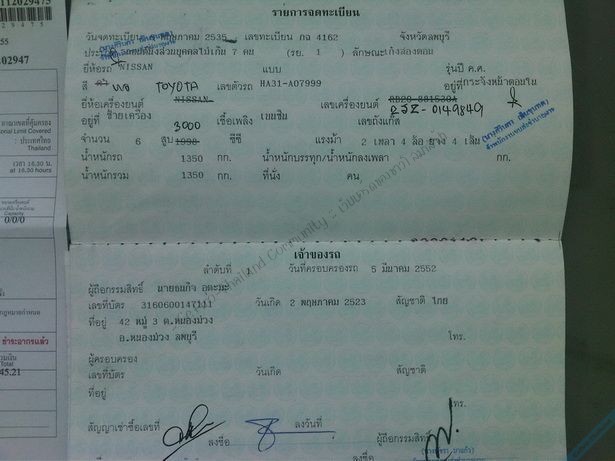 112029475
รายการจดทะเบียน
วันจดทะเบียน พฤษภาคม 2535 เลขทะเบียน กจ 4162 จังหวัดลพบุรี
ประเภท นั่งส่วนบุคคลไม่เกิน 7 คน (รย. 1) ลักษณะ เก๋งสองตอน
ยี่ห้อรถ NISSAN แบบ รุ่นปี ค.ศ.
สี TOYOTA เลขตัวรถ HA31-A07999 อยู่ที่ กระจังหน้าตอนใน
ยี่ห้อเครื่องยนต์ NISSAN เลขเครื่องยนต์ RD28-881530A
อยู่ที่ ซ้ายเครื่อง 3000 เชื้อเพลิง เบนซิน เลขถังแก๊ส 2JZ-0149849
จำนวน 6 สูบ 1998 ซีซี แรงม้า 2 เพลา 4 ล้อ ยาง 4 เส้น
น้ำหนักรถ 1350 กก. น้ำหนักบรรทุก/น้ำหนักลงเพลา กก.
น้ำหนักรวม 1350 กก. ที่นั่ง คน
เจ้าของรถ
ลำดับที่ 1 วันที่ครอบครองรถ 5 มีนาคม 2552
ผู้ถือกรรมสิทธิ์ นายธนกิจ อุตะมะ
เลขที่บัตร 3160600147111 วันเกิด 2 พฤษภาคม 2523 สัญชาติ ไทย
ที่อยู่ 42 หมู่ 3 ต.หนองม่วง
อ.หนองม่วง ลพบุรี โทร.
ผู้ครอบครอง
เลขที่บัตร วันเกิด สัญชาติ
ที่อยู่
โทร.
สัญญาเช่าซื้อเลขที่ ลงวันที่ ผู้ถือกรรมสิทธิ์
ลงชื่อ ลงชื่อ
02947
onal Limit Covered
: ประเทศไทย
Thailand
เวลา 16.30 น.
at 16.30 hours
Capacity
0/0/0
ชำระอากรแล้ว
Total
45.21